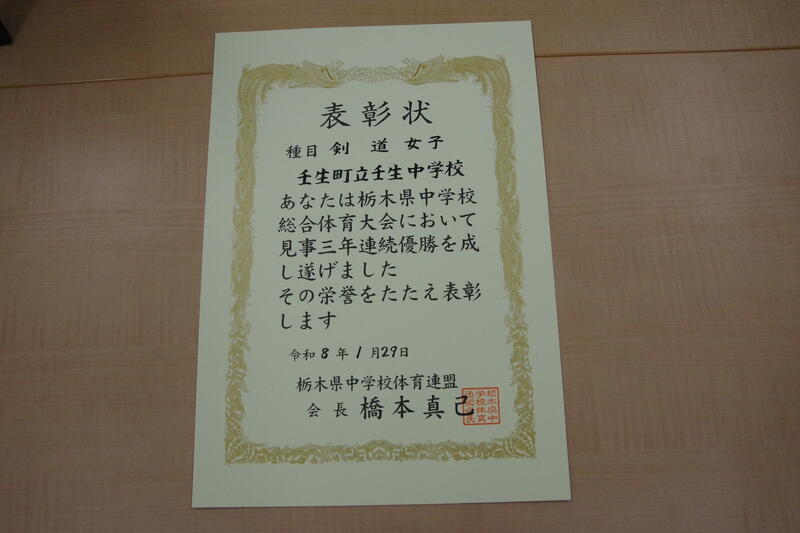 表彰状
種目 剣 道 女子
壬生町立壬生中学校
あなたは栃木県中学校
総合体育大会において
見事三年連続優勝を成
し遂げました
その栄誉をたたえ表彰
します
令和 8 年 1 月 29日
栃木県中学校体育連盟
会 長 橋本真己
栃木県中
学校体育
連盟会長